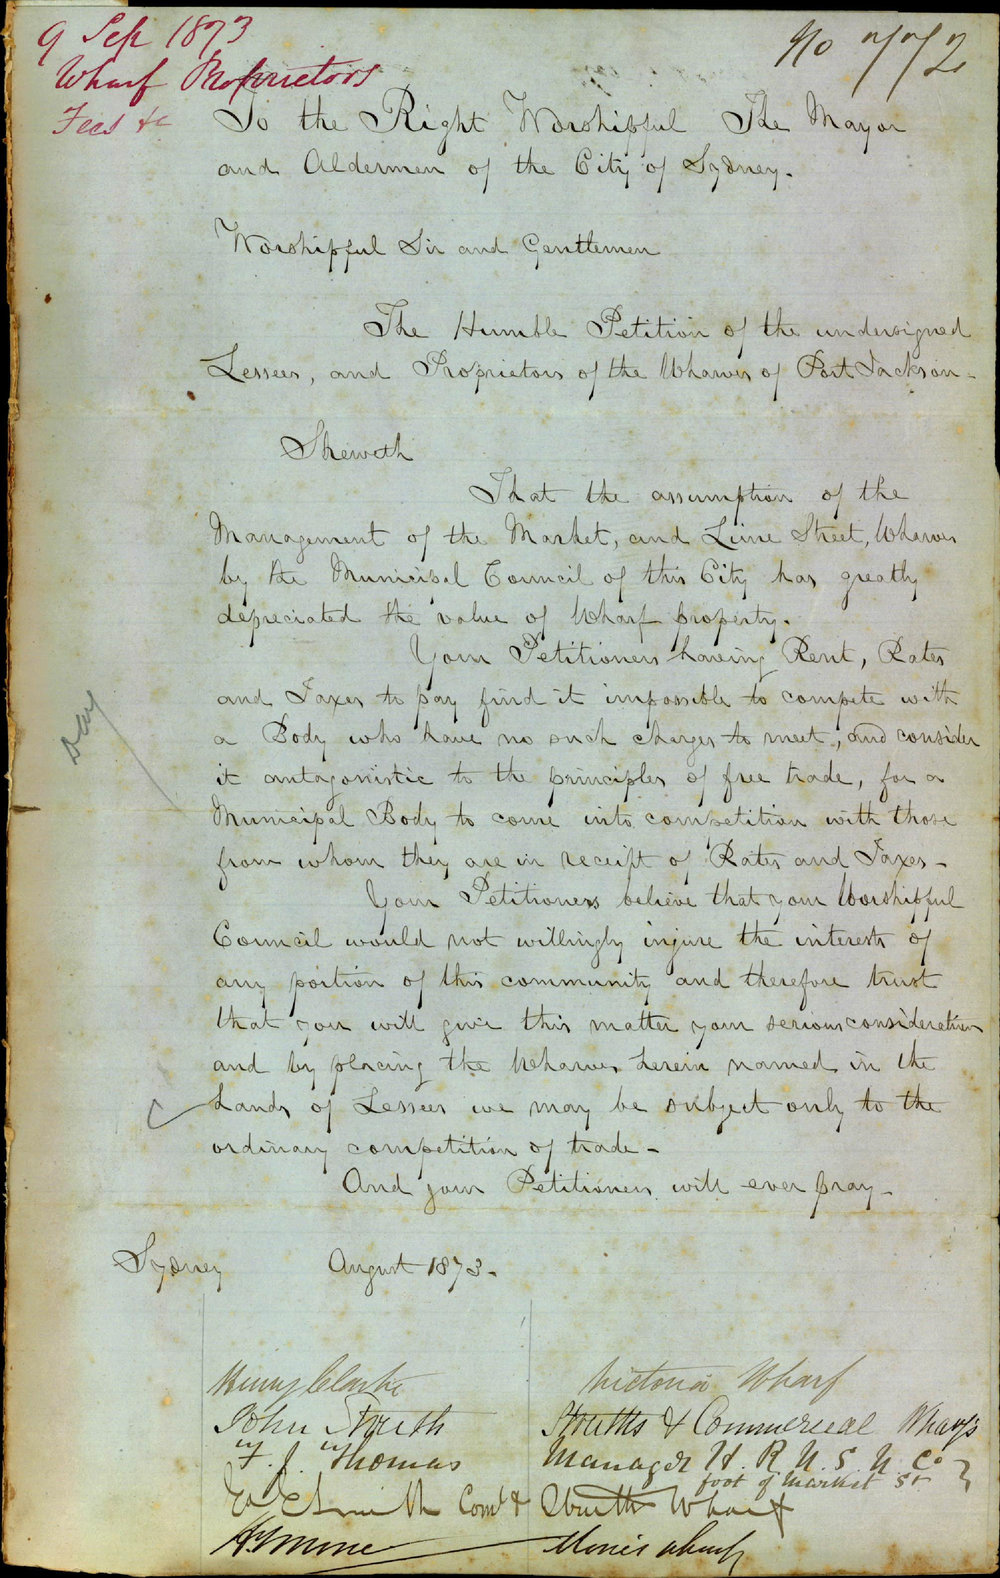 9 Sep 1873
Wharf Proprietors
Fees &c
No 772
To the Right Worshipful The Mayor
and Aldermen of the City of Sydney.
Worshipful Sir and Gentlemen
The Humble Petition of the undersigned
Lessees, and Proprietors of the Wharves of Port Jackson-
Sheweth
That the assumption of the
Management of the Market, and Lime Street, Wharves
by the Municipal Council of this City has greatly
depreciated the value of Wharf property.
Your Petitioners having Rent, Rates
and Taxes to pay find it impossible to compete with
a Body who have no such charges to meet, and consider
it antagonistic to the principles of free trade, for a
Municipal Body to come into competition with those
from whom they are in receipt of Rates and Taxes-
Your Petitioners believe that your Worshipful
Council would not willingly injure the interests of
any portion of this community and therefore trust
that you will give this matter your serious consideration
and by placing the Wharves herein named in the
hands of Lessees we may be subject only to the
ordinary competition of trade-
And your Petitioners will ever pray-
Sydney August 1873-
Henry Clarke Victoria Wharf
John Struth Struths & Commercial Wharfs
F. J. Thomas Manager H. R. N. S. N. Co
foot of Market St
Smith Coml & Struth Wharf
Moore Moores Wharf